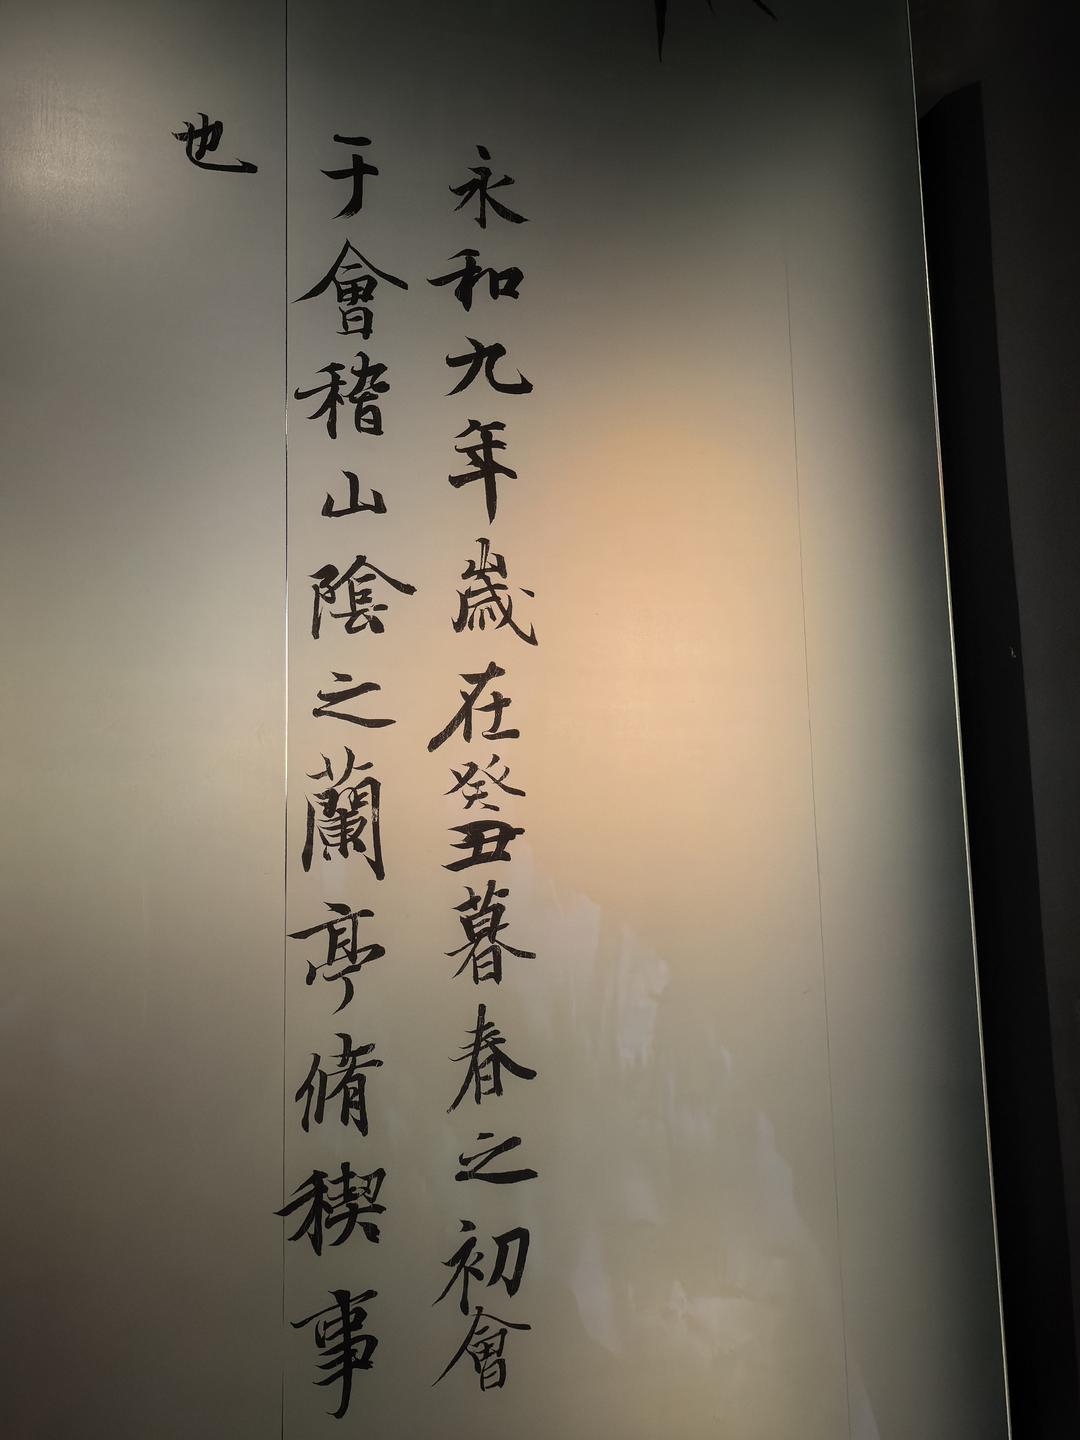 永和九年歲在癸丑暮春之初會
于會稽山陰之蘭亭脩稧事
也